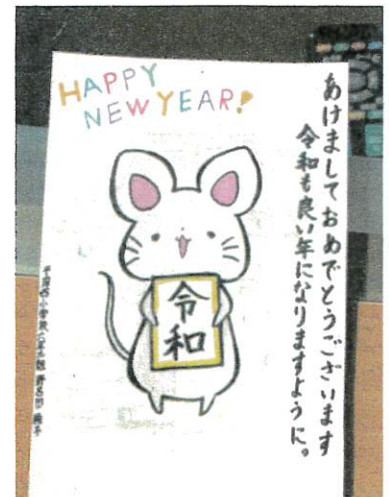 HAPPY
NEW YEAR!
あけましておめでとうございます
令和も良い年になりますように。
令和